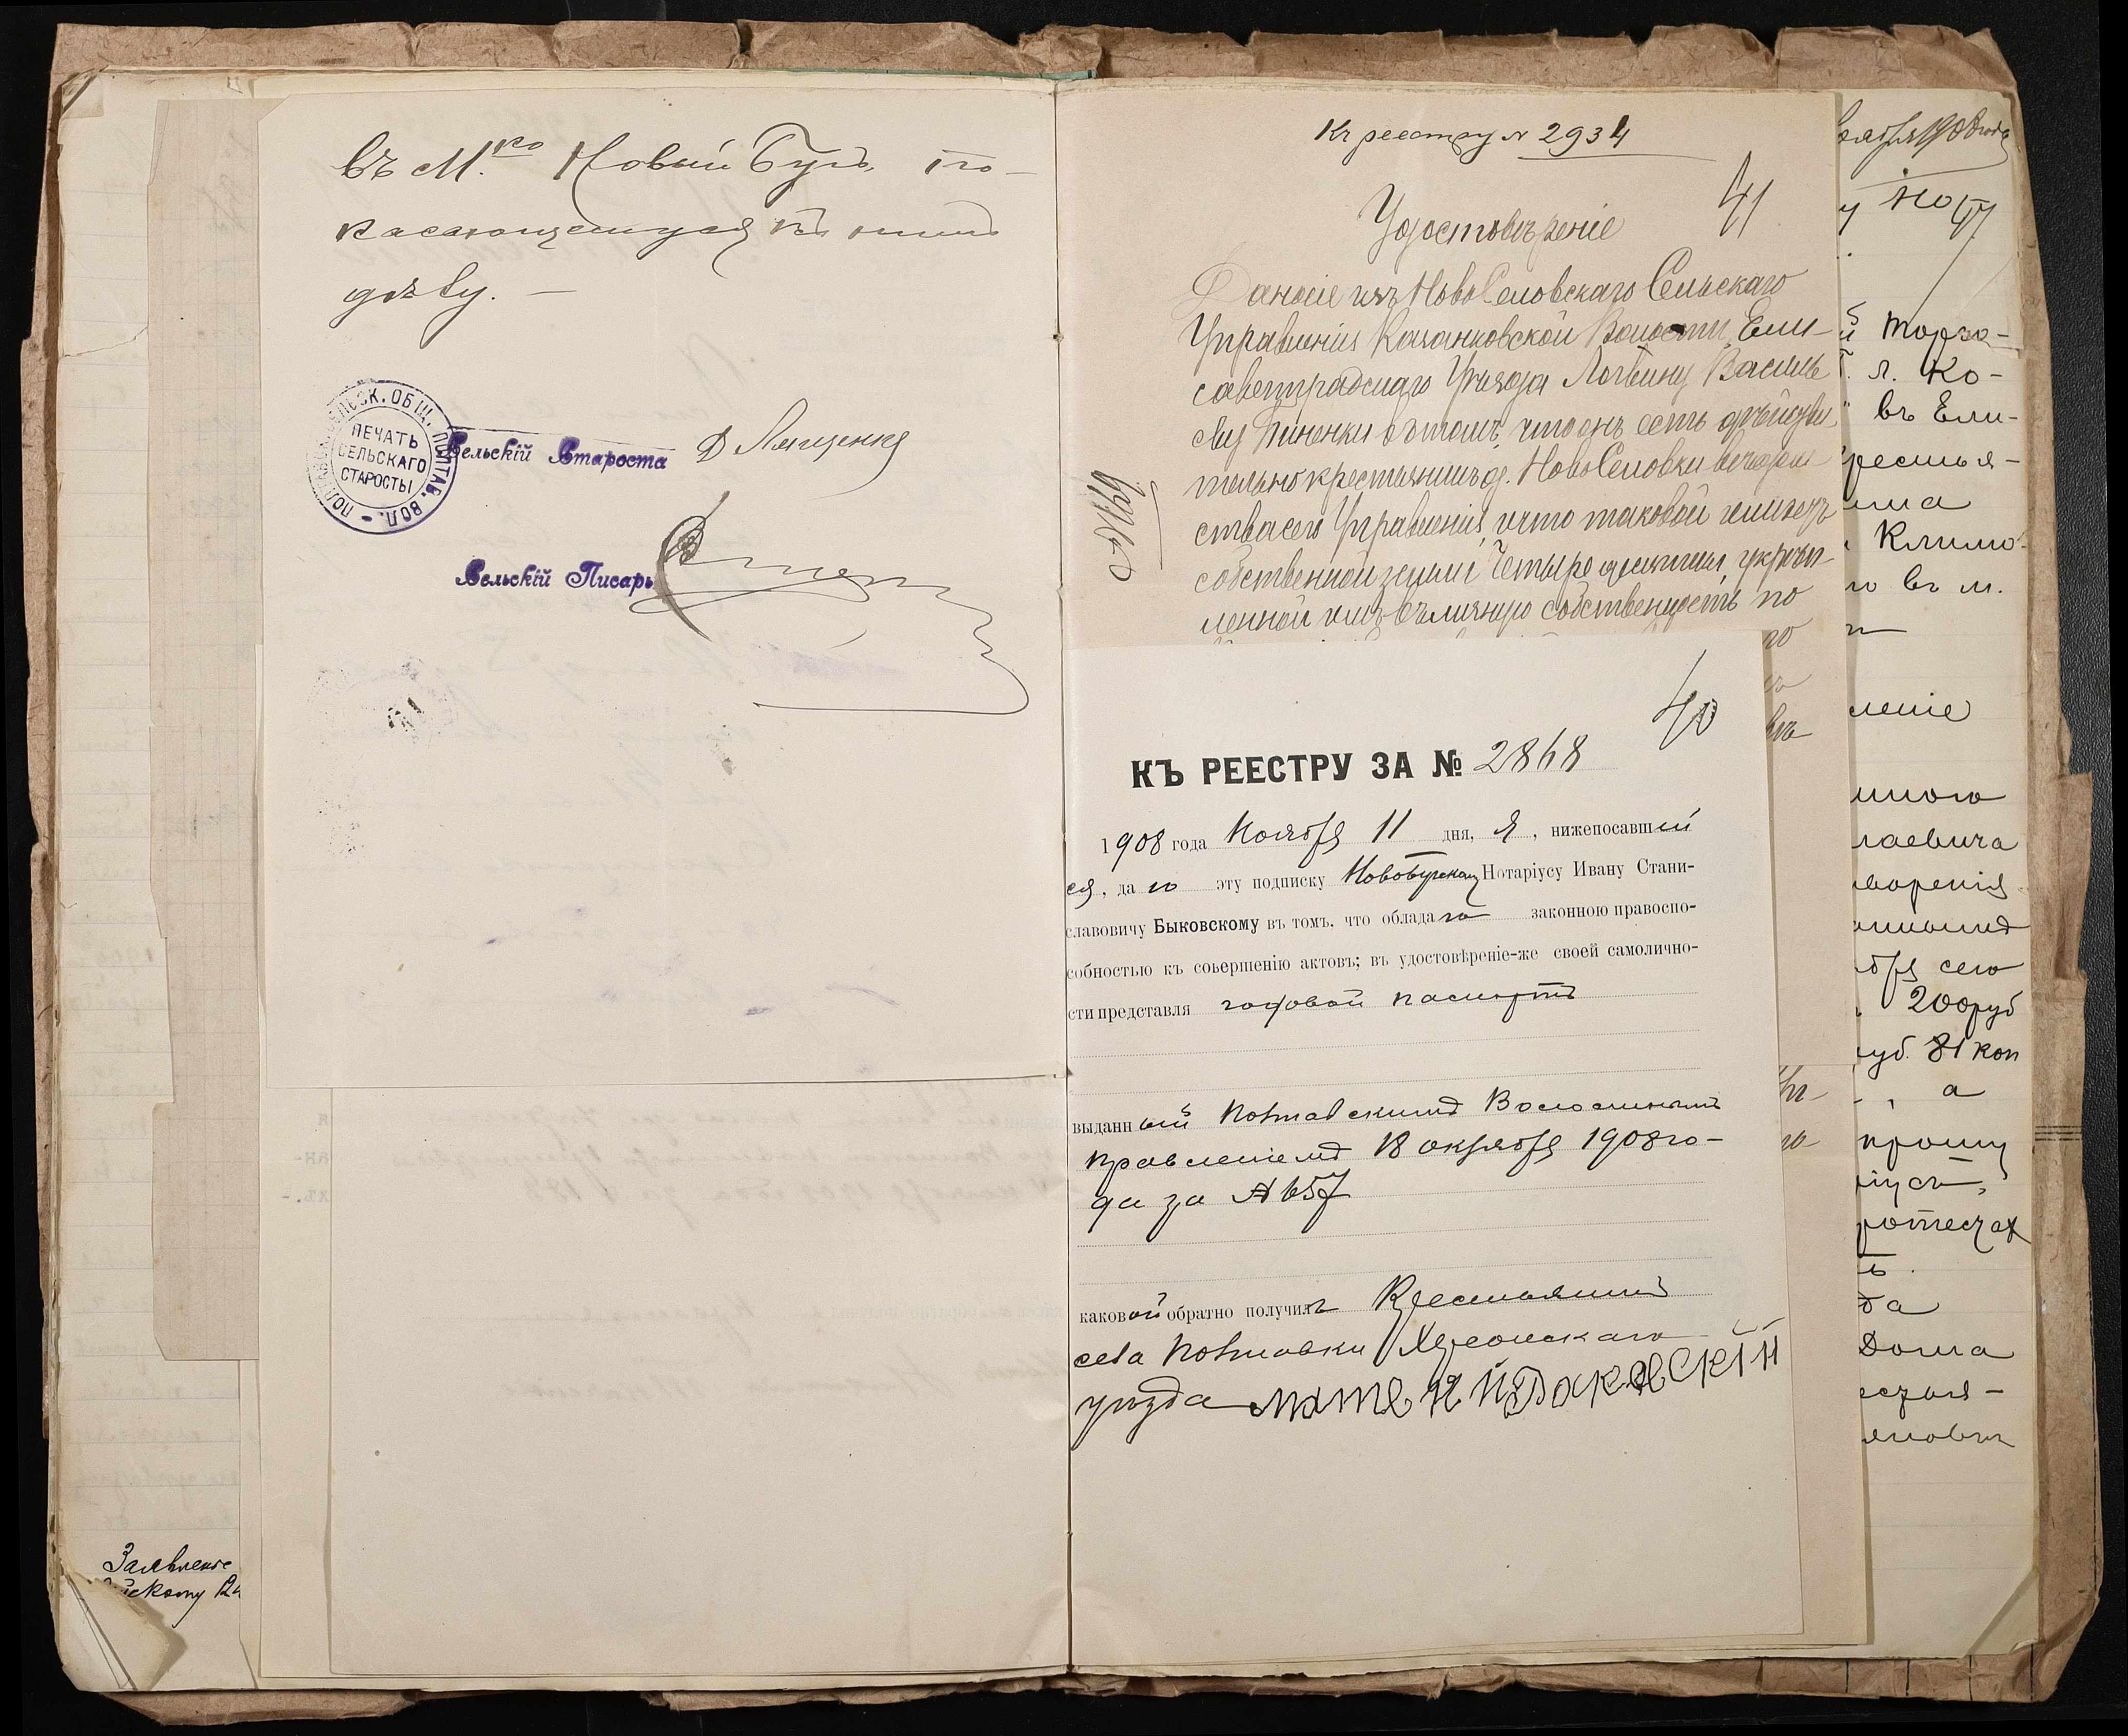 въ М.ко Новый Бугъ по
касающемуся къ нимъ
дѣлу. —
ПЕЧАТЬ
СЕЛЬСКАГО
СТАРОСТЫ
Сельскій Староста Д Лященко
Сельскій Писарь
Заявленіе
Къ реестру N 2934
41
Удостовѣреніе
Данное изъ НовоСеловскаго Сельскаго
Управленія Качанковской Волости, Ели-
саветградскаго Уѣзда Логвину Василье
ву о томъ, что онъ есть дѣйстви
тельно крестьянинъ д. НовоСеловки
ства сего Управленія, и что таковой имѣетъ
собственной земли Четыре десятины укрѣп-
ленной имъ въ личную собственность по
№ 169
40
КЪ РЕЕСТРУ ЗА № 2868
1908 года Ноября 11 дня, Я, нижепосавшій
ся, да ю эту подписку Новобугскому Нотаріусу Ивану Стани-
славовичу Быковскому въ томъ, что облада ю законною правоспо-
собностью къ совершенію актовъ; въ удостовѣреніе-же своей самолично-
сти представля годовой паспортъ
выданн ый Полтавскимъ Волостнымъ
Правленіемъ 18 октября 1908 го-
да за № 657
каковой обратно получилъ Крестьянинъ
села Полтавки Херсонскаго
уѣзда
ноября 1908 года
торго-
л. Ко-
въ Ели-
крестья-
Климо
въ м.
леніе
лаевича
воренія
ября сего
200 руб
руб. 81 коп
а
прошу
да
Дома